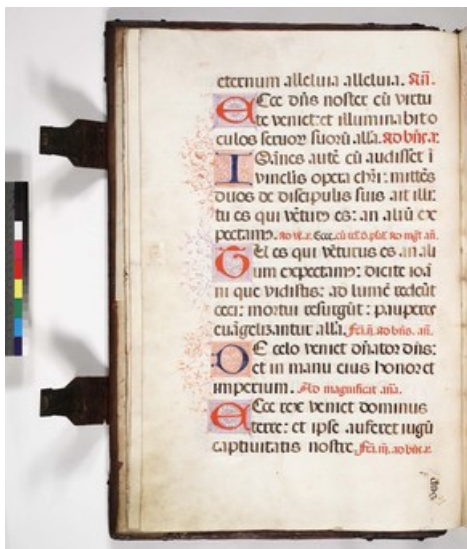 eternum alleluia alleluia. Añ.
Ecce dñs noster cū virtu
te veniet: et illuminabit o
culos seruoꝝ suoꝝ alla. Ad bñc. a.
Ioānes autē cū audisset ī
vinclis opera chri: mittēs
duos de discipulis suis ait illi:
tu es qui vēturꝰ es: an aliū ex
pectamꝰ. Ecce. añ.
Tu es qui vēturus es. an ali
um expectamꝰ: dicite ioā
ni que vidistis: ad lumē redeūt
ceci: mortui resurgūt: pauperes
euāgelizantur alla. Fei. ij. ad bñs. añ.
DE celo veniet dñator dñs:
et in manu eius honor et
imperium. Ad magnificat aña.
Ecce rex veniet dominus
terre: et ipse auferet iugū
captiuitatis nostre. Fei. iij. ad bñc. a.